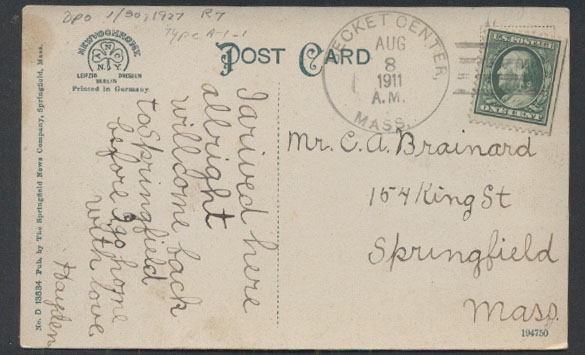 DPO 1/30/1927 R7
TYPE A-1-1
NEWVOCHROME
N Y N Y
LEIPZIG DRESDEN
BERLIN
Printed in Germany
POST CARD
BECKET CENTER,
AUG
8
1911
A.M.
MASS.
U.S. POSTAGE
ONE CENT
I arived here
allright
will come back
to Springfield
before I go home
with love
Hayden
Mr. C.A. Brainard
154 King St
Springfield
Mass.
No. D 13534 Pub. by The Springfield News Company, Springfield, Mass.
194750